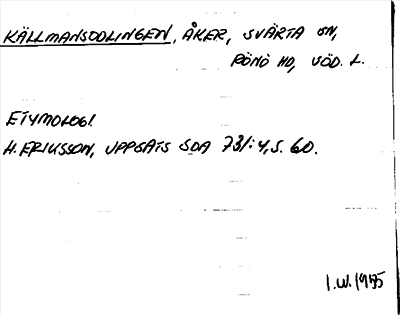 KÄLLMANSODLINGEN, ÅKER, SVÄRTA SN,
RÖNÖ HD, SÖD. L.
ETYMOLOGI.
H. ERIKSSON, UPPSATS SOA 731:4, S. 60.
I.W. 1975